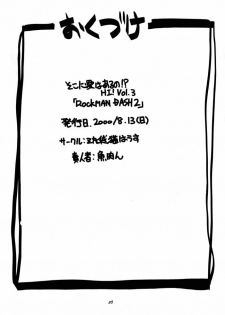 おくづけ
そこに愛はあるの!?
HI! Vol.3
「ROCKMAN DASH2」
発行日.2000/8.13(日)
サークル:
責人者:魚肉ん